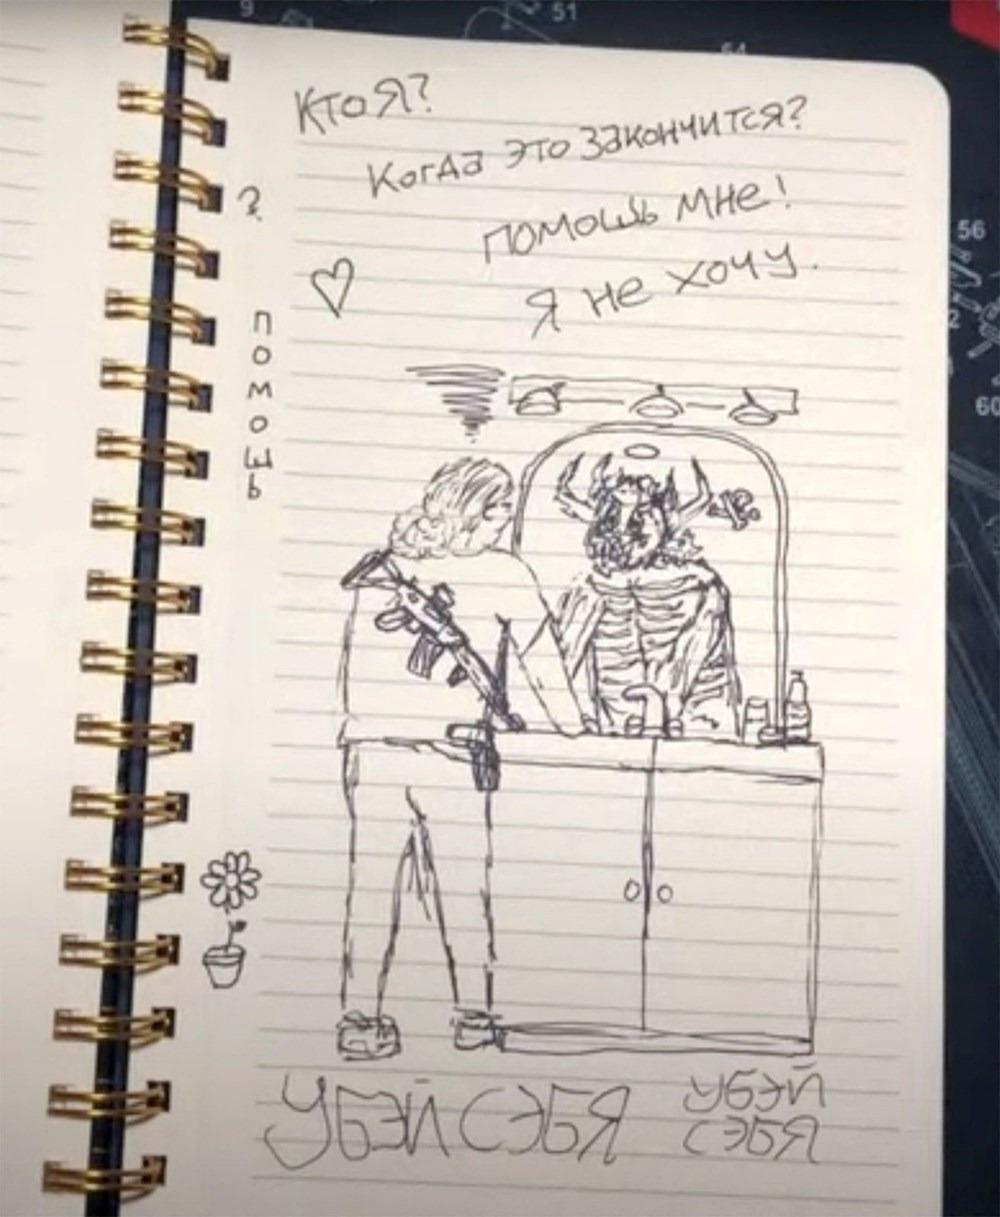 9
51
54
Кто Я?
Когда это закончится?
помошь мне!
Я не хочу.
?
помошь
56
2
60
Убэй сэбя
Убэй
сэбя